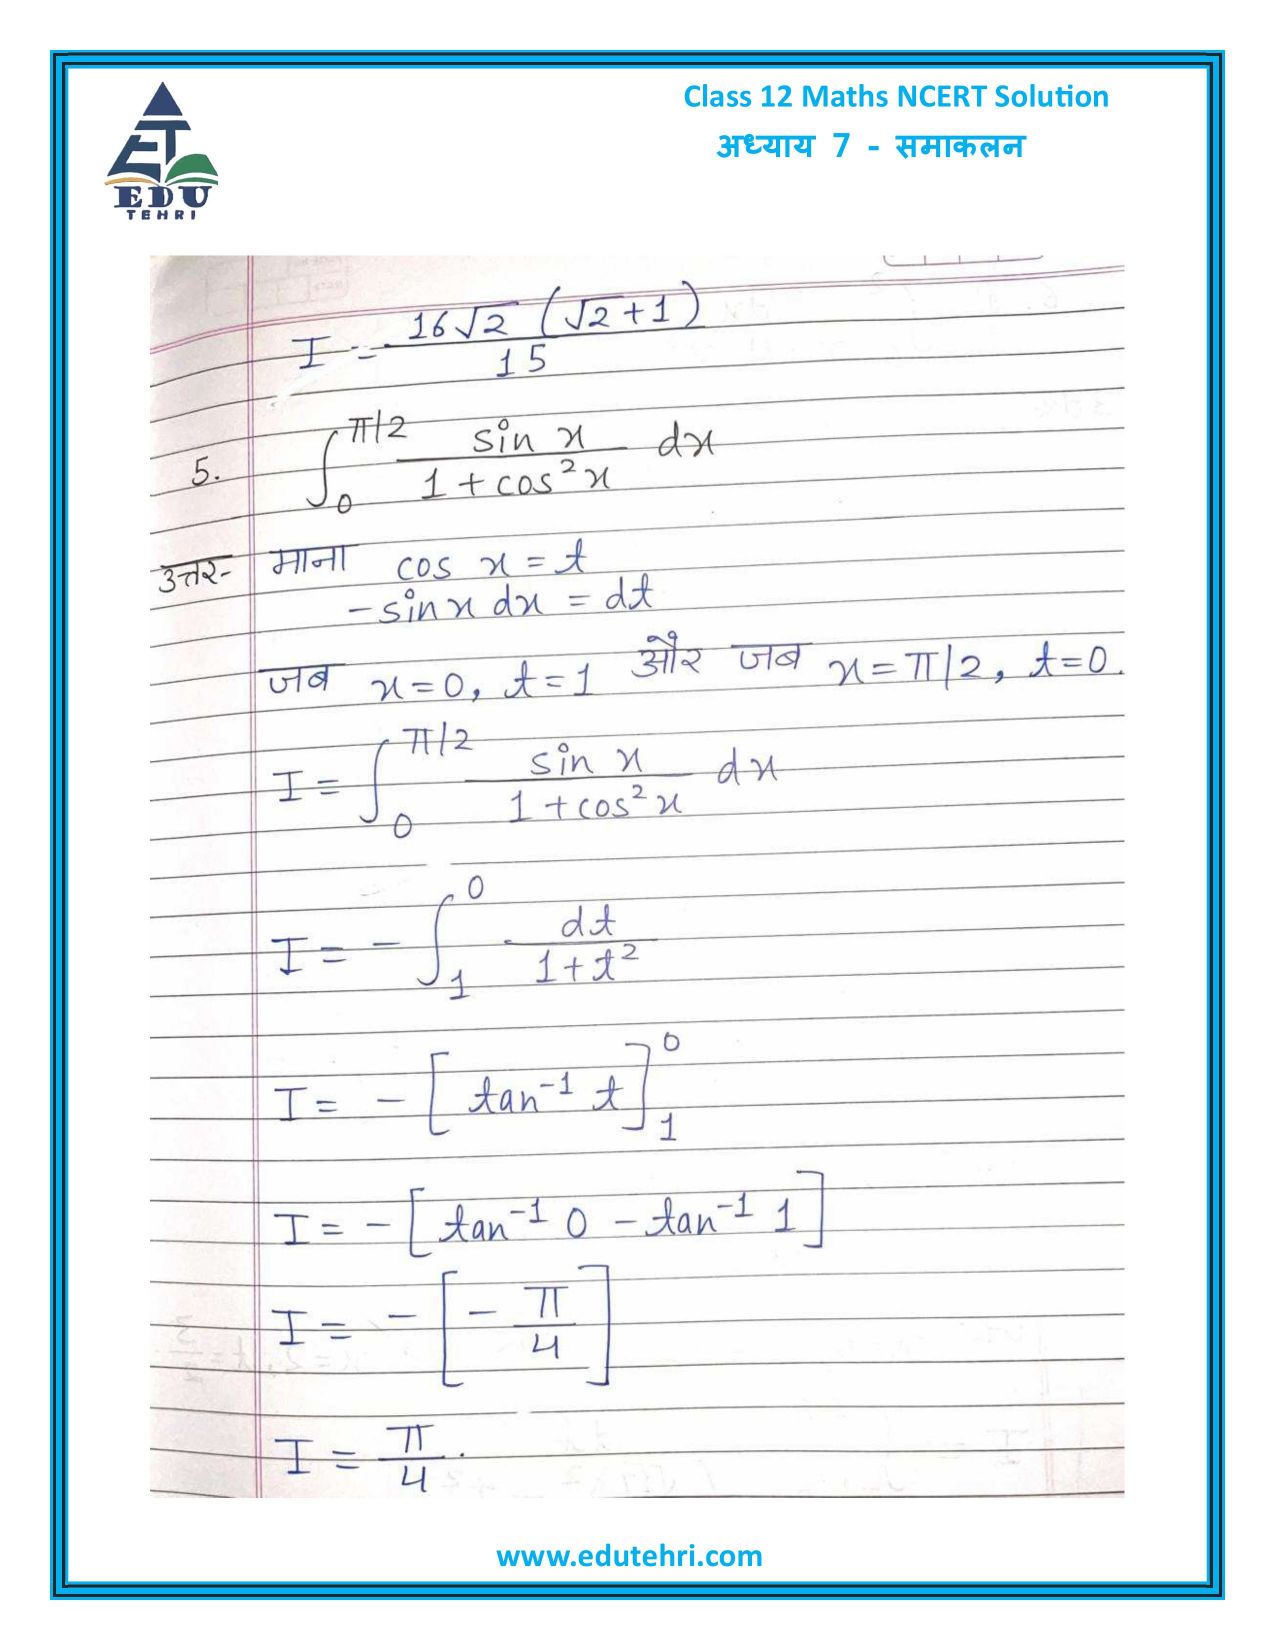 Class 12 Maths NCERT Solution
अध्याय 7 - समाकलन
ET
EDU
TEHRI
I = 16√2 (√2+1) / 15
5. ∫₀^π/2 sin x / 1 + cos²x dx
उत्तर- माना cos x = t
- sin x dx = dt
जब x=0, t=1 और जब x=π/2, t=0.
I = ∫₀^π/2 sin x / 1 + cos²x dx
I = - ∫₁⁰ dt / 1 + t²
I = - [tan⁻¹ t]₁⁰
I = - [tan⁻¹ 0 - tan⁻¹ 1]
I = - [- π/4]
I = π/4.
www.edutehri.com